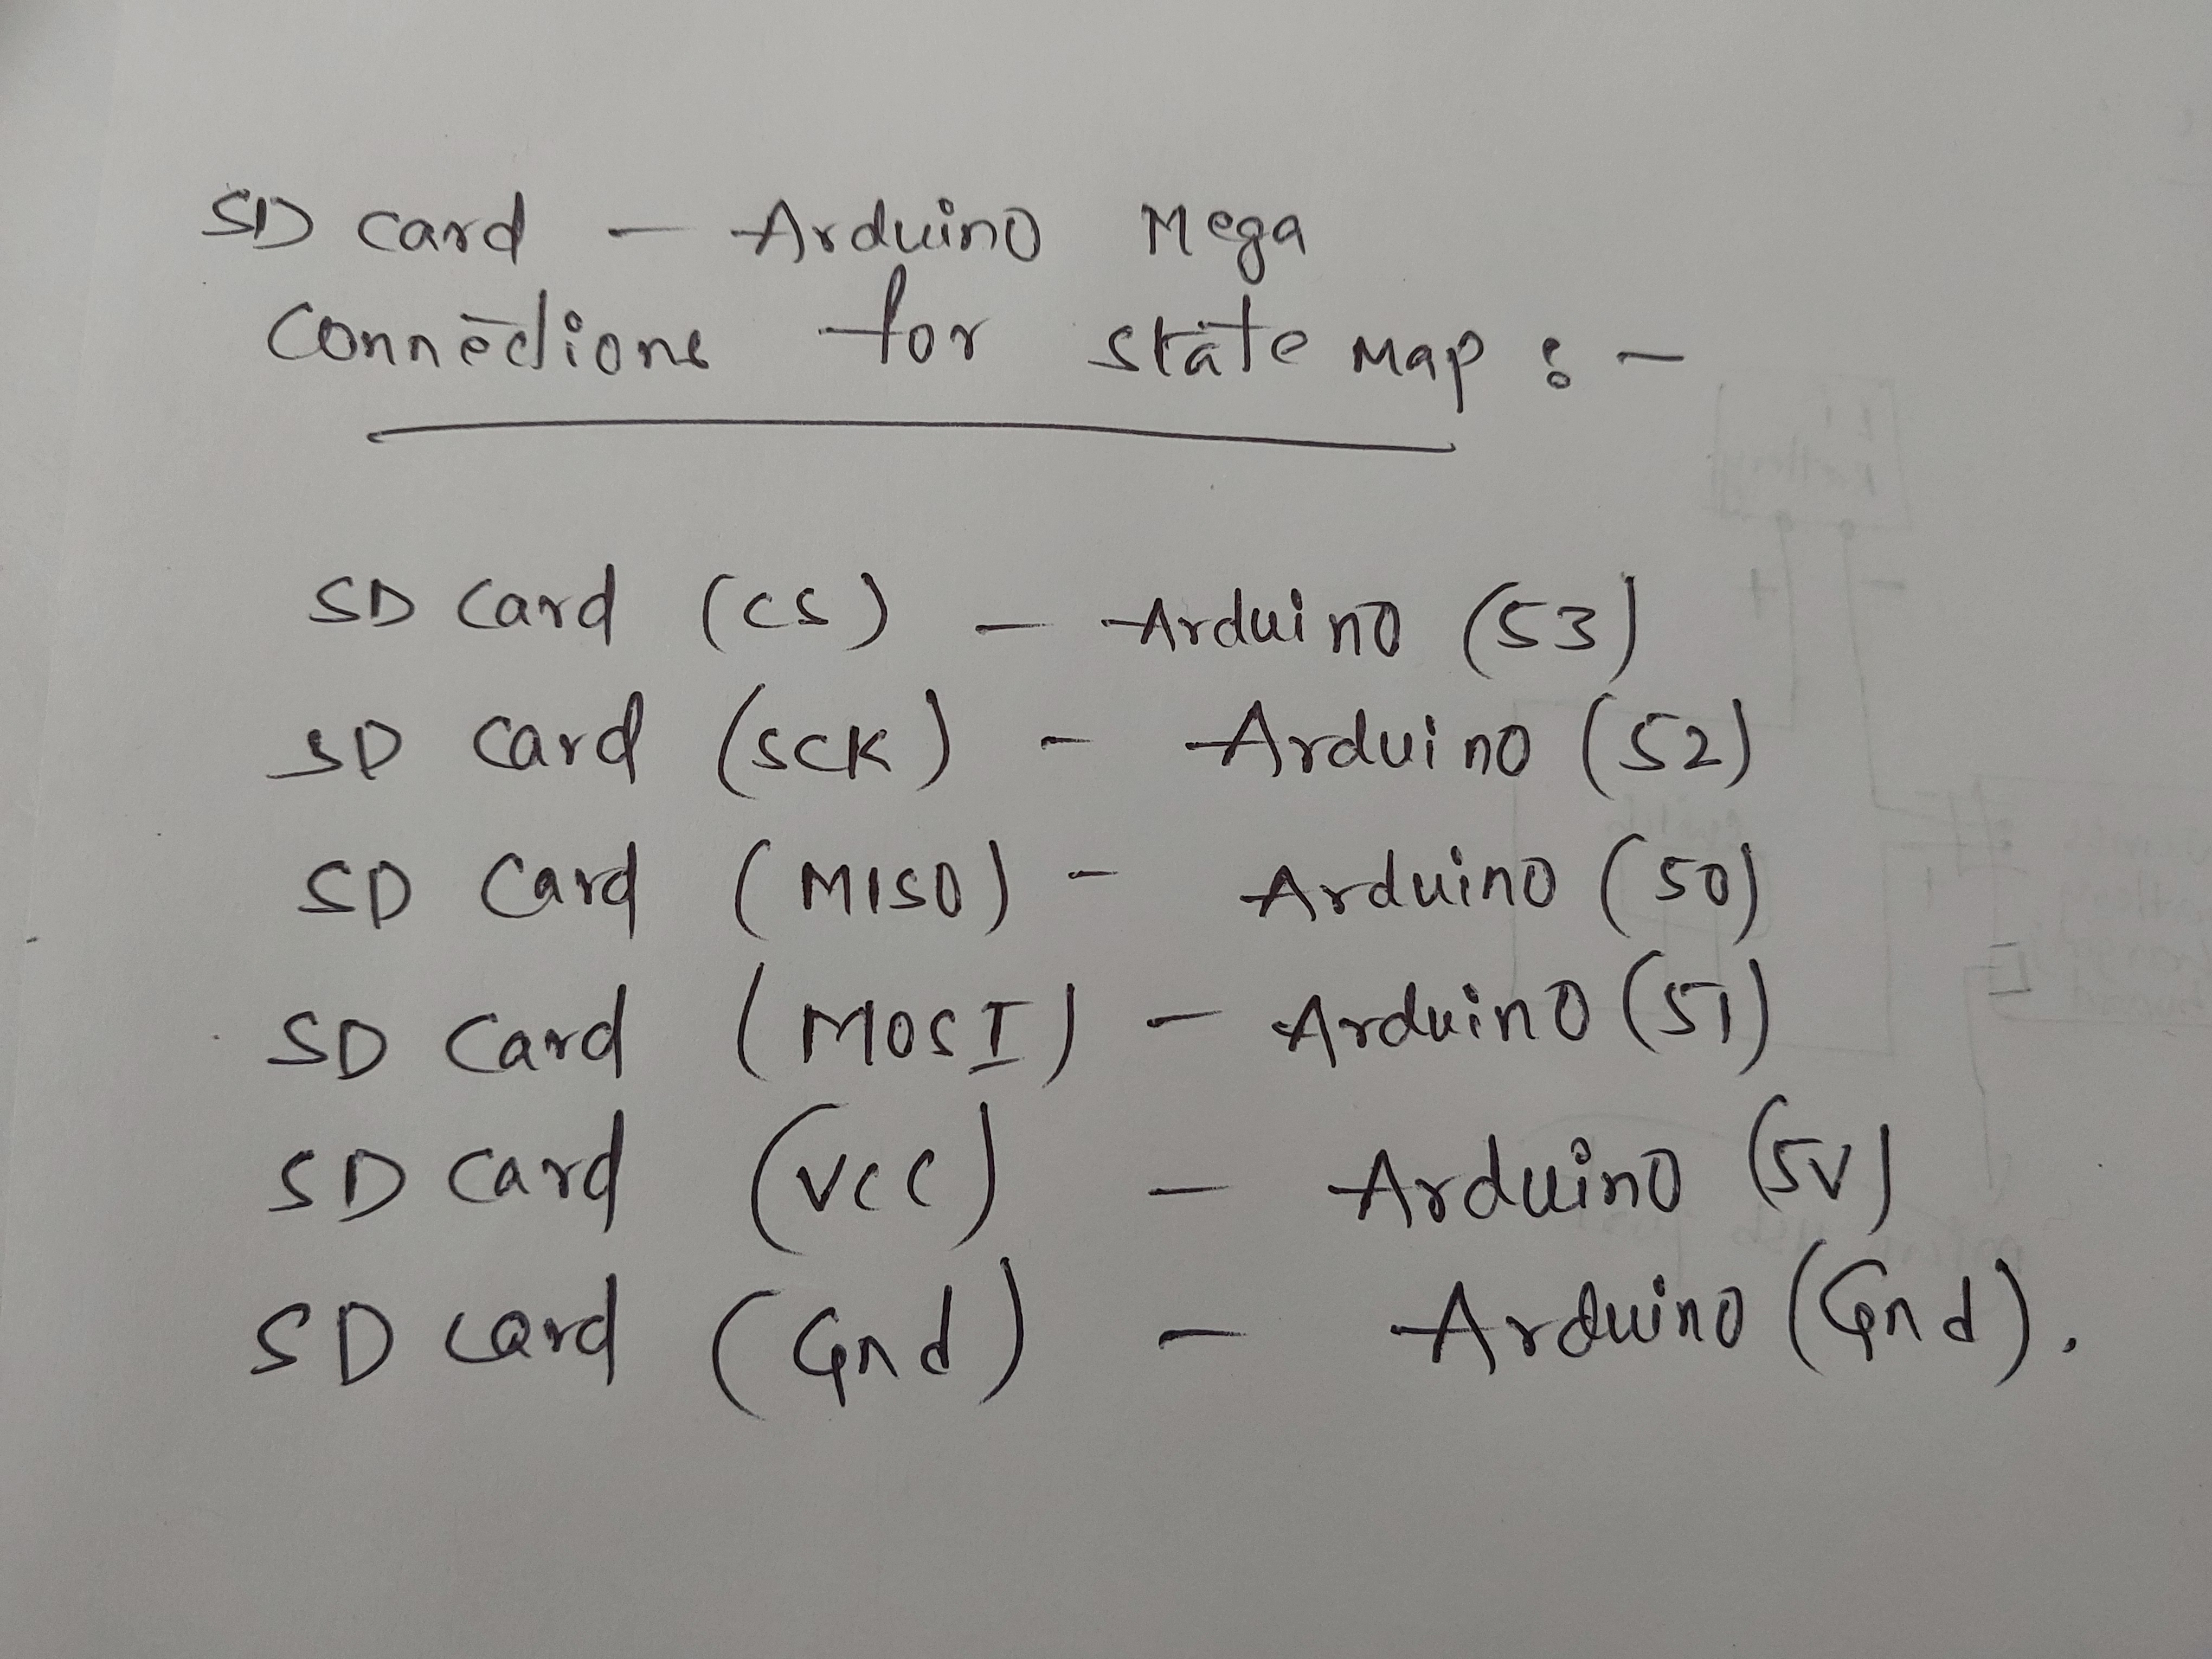 SD Card - Arduino Mega
Connections for state map : -
SD Card (CS) - Arduino (53)
SD Card (SCK) - Arduino (52)
SD Card (MISO) - Arduino (50)
SD Card (MOSI) - Arduino (51)
SD Card (VCC) - Arduino (5V)
SD Card (Gnd) - Arduino (Gnd).